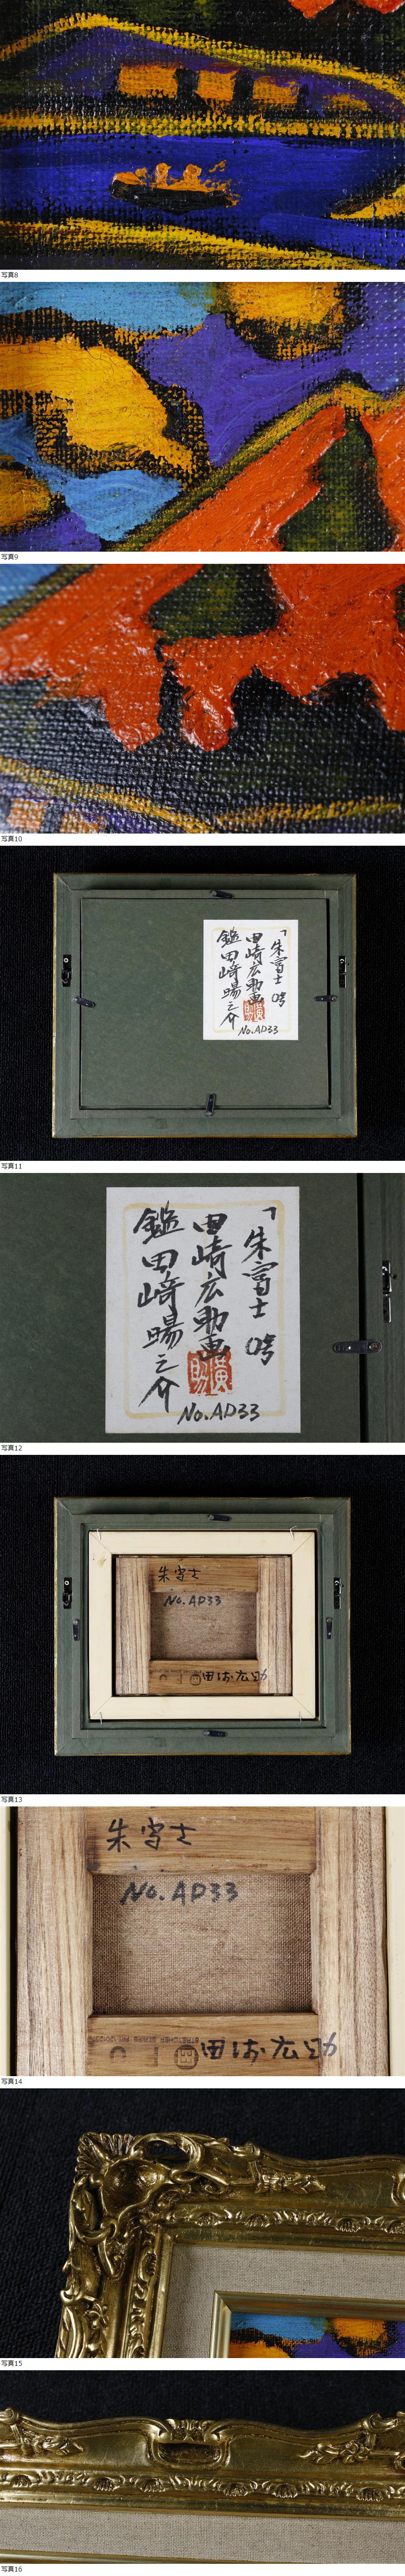 写真8
写真9
写真10
「朱富士 0号
田崎広助画
鑑 田崎暘之介
No.AD33
写真11
「朱富士 0号
田崎広助画
鑑 田崎暘之介
No.AD33
写真12
朱富士
No.AD33
写真13
朱富士
No.AD33
写真14
写真15
写真16